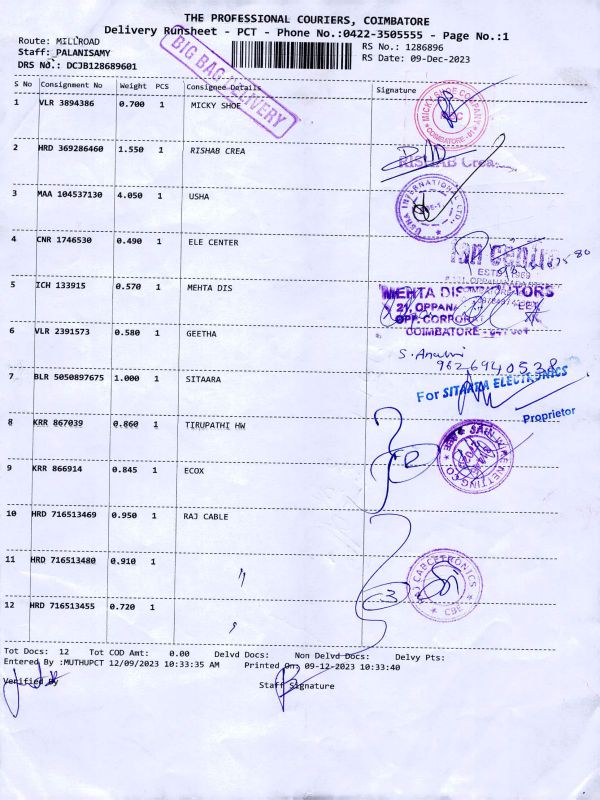 THE PROFESSIONAL COURIERS, COIMBATORE
Delivery Runsheet - PCT - Phone No.:0422-3505555 - Page No.:1
Route: MILLROAD
RS No.: 1286896
Staff: PALANISAMY
RS Date: 09-Dec-2023
DRS No.: DCJB128689601
BIG BAG DELIVERY
S No Consignment No Weight PCS Consignee Details Signature
1 VLR 3894386 0.700 1 MICKY SHOE
MICKY SHOE COMPANY COIMBATORE
2 HRD 369286460 1.550 1 RISHAB CREA
RISHAB Crea
3 MAA 104537130 4.050 1 USHA
USHA INTERNATIONAL LTD.
4 CNR 1746530 0.490 1 ELE CENTER
5 ICH 133915 0.570 1 MEHTA DIS
MEHTA DISTRIBUTORS
21, OPPANA
OPP. CORPOR
COIMBATORE
6 VLR 2391573 0.580 1 GEETHA
9626940538
7 BLR 5050897675 1.000 1 SITAARA
For SITAARA ELECTRONICS
Proprietor
8 KRR 867039 0.860 1 TIRUPATHI HW
2
9 KRR 866914 0.845 1 ECOX
10 HRD 716513469 0.950 1 RAJ CABLE
11 HRD 716513480 0.910 1 "
3
CBE
12 HRD 716513455 0.720 1
Tot Docs: 12 Tot COD Amt: 0.00 Delvd Docs: Non Delvd Docs: Delvy Pts:
Entered By :MUTHUPCT 12/09/2023 10:33:35 AM Printed On: 09-12-2023 10:33:40
Verified By Staff Signature